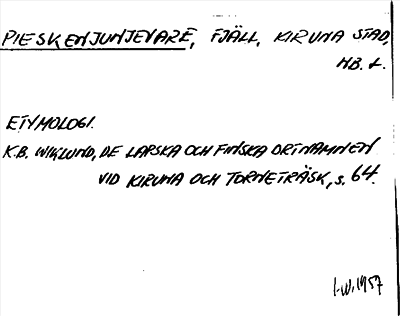 PIESKENJUNJEVARE, FJÄLL, KIRUNA STAD,
NB. L.
ETYMOLOGI.
K.B. WIKLUND, DE LAPSKA OCH FINSKA ORTNAMNEN
VID KIRUNA OCH TORNETRÄSK, s. 64.
I-W. 1957